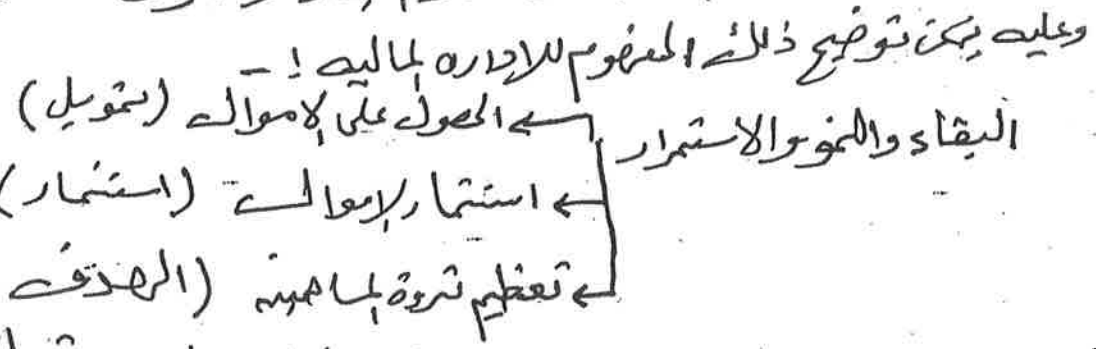 وعليه يمكن توضيح ذلك المفهوم للإداره الماليه :-
البقاء والنمو والاستمرار ← الحصول على الاموال (تمويل)
← استثمار الاموال (استثمار)
← تعظيم ثروة المساهمين (الهدف